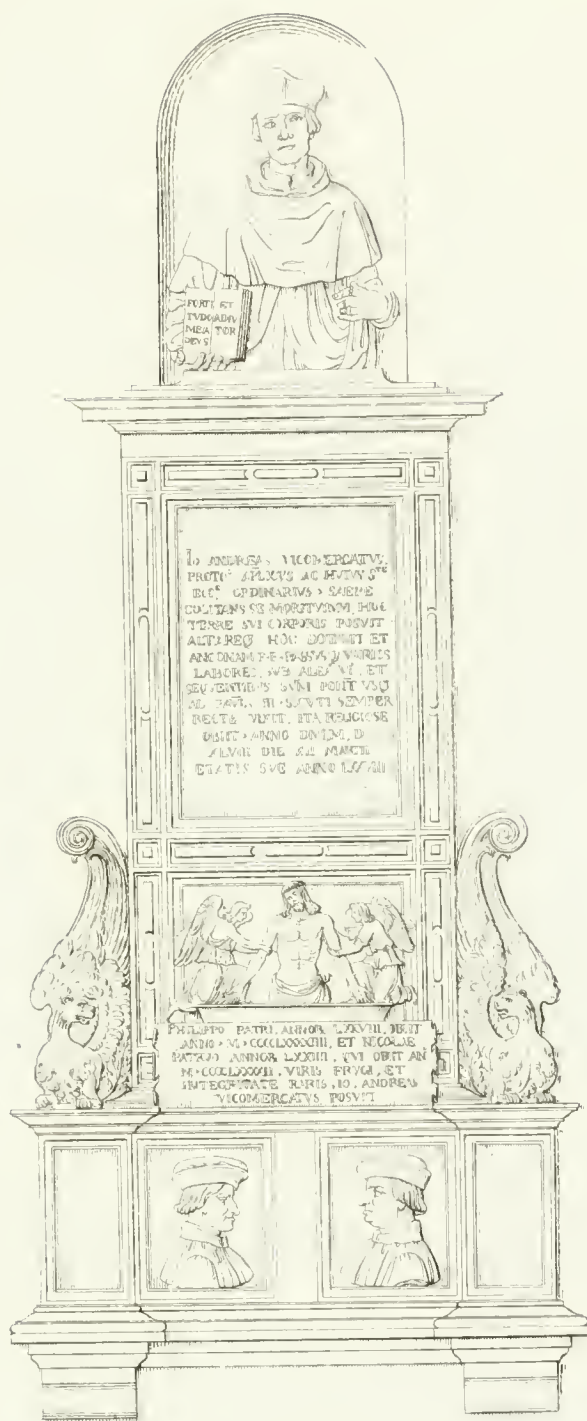 FORTI ET
TVDO ADIV
MEA TOR
DEVS
IO ANDREAS VICOMERCATVS,
PROTO APLICVS AC HVIVS STE
ECCE ORDINARIVS
COLITANS SE MORITVRVM, HOC
TERRE SVI CORPORIS POSVIT
ALTAREQ HOC DOTAVIT ET
VARIIS
LABORES, SVB ALEX VI, ET
SEQVENTIBVS PONT VSQ
AD III SICVTI SEMPER
RECTE VIXIT, ITA RELIGIOSE
OBIIT ANNO DNI M, D
XLVIII DIE
ETATIS SVE ANNO
PHILIPPO PATRI, ANNOR LXXVIII, OBIIT
ANNO M CCCCLXXXXIII, ET NICOLAE
PATRVO ANNOR LXXIIII, QVI OBIIT AN
VIRIS FRVGI, ET
INTEGRITATE RARIS, IO. ANDREAS
VICOMERCATVS POSVIT